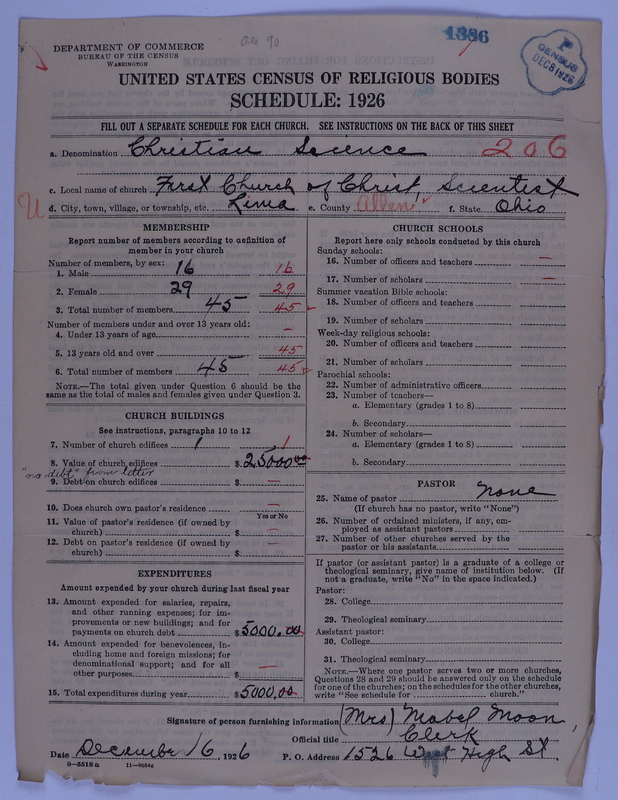 Dec 90
1386
DEPARTMENT OF COMMERCE
BUREAU OF THE CENSUS
WASHINGTON
P
CENSUS
DEC 8 1926
UNITED STATES CENSUS OF RELIGIOUS BODIES
SCHEDULE: 1926
FILL OUT A SEPARATE SCHEDULE FOR EACH CHURCH. SEE INSTRUCTIONS ON THE BACK OF THIS SHEET
a. Denomination Christian Science 206
c. Local name of church First Church of Christ, Scientist
U d. City, town, village, or township, etc. Lima e. County Allen f. State Ohio
MEMBERSHIP
Report number of members according to definition of
member in your church
Number of members, by sex:
1. Male 16 16
2. Female 29 29
3. Total number of members 45 45
Number of members under and over 13 years old:
4. Under 13 years of age —
5. 13 years old and over 45
6. Total number of members 45 45
NOTE.—The total given under Question 6 should be the
same as the total of males and females given under Question 3.
CHURCH BUILDINGS
See instructions, paragraphs 10 to 12
7. Number of church edifices 1 1
8. Value of church edifices $ 25000.00
"no debt" from letter
9. Debt on church edifices $ —
10. Does church own pastor's residence —
Yes or No
11. Value of pastor's residence (if owned by
church) $ —
12. Debt on pastor's residence (if owned by
church) $ —
EXPENDITURES
Amount expended by your church during last fiscal year
13. Amount expended for salaries, repairs,
and other running expenses; for im-
provements or new buildings; and for
payments on church debt $ 5000.00
14. Amount expended for benevolences, in-
cluding home and foreign missions; for
denominational support; and for all
other purposes $ —
15. Total expenditures during year $ 5000.00
CHURCH SCHOOLS
Report here only schools conducted by this church
Sunday schools:
16. Number of officers and teachers —
17. Number of scholars —
Summer vacation Bible schools:
18. Number of officers and teachers
19. Number of scholars
Week-day religious schools:
20. Number of officers and teachers
21. Number of scholars
Parochial schools:
22. Number of administrative officers
23. Number of teachers—
a. Elementary (grades 1 to 8)
b. Secondary
24. Number of scholars—
a. Elementary (grades 1 to 8)
b. Secondary
PASTOR
25. Name of pastor None
(If church has no pastor, write "None")
26. Number of ordained ministers, if any, em-
ployed as assistant pastors
27. Number of other churches served by the
pastor or his assistants
If pastor (or assistant pastor) is a graduate of a college or
theological seminary, give name of institution below. (If
not a graduate, write "No" in the space indicated.)
Pastor:
28. College
29. Theological seminary
Assistant pastor:
30. College
31. Theological seminary
NOTE.—Where one pastor serves two or more churches,
Questions 28 and 29 should be answered only on the schedule
for one of the churches; on the schedules for the other churches,
write "See schedule for church."
Signature of person furnishing information (Mrs) Mabel Moon,
Official title Clerk
Date December 16, 1926 P. O. Address 1526 West High St.
8—5518 a